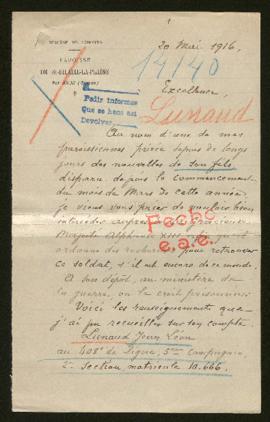 20 Mai 1916.
DIOCÈSE DE LIMOGES
14/40
PAROISSE
DE St-HILAIRE-LA-PLAINE
Excellence
Pedir informes
Que se haga así
Devolver
Lunaud
Au nom d'une de mes
paroissiennes privée depuis de longs
jours des nouvelles de son fils
disparu depuis le commencement
du mois de Mars de cette année,
je viens vous prier de vouloir bien
intercéder auprès de sa Gracieuse
Majesté Alphonse XIII afin qu'il
Fecho
e.a.e.
ordonne des recherches pour retrouver
ce soldat, s'il est encore de ce monde.
A son dépôt, au ministère de
la guerre, on le croit prisonnier.
Voici les renseignements que
j'ai pu recueillir sur son compte
Lunaud Jean Léon
au 408e de ligne, 5me Compagnie,
2e Section, matricule 10.666.